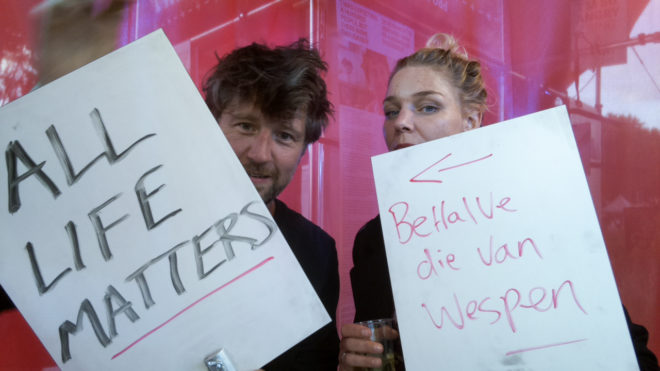 ALL
LIFE
MATTERS
Behalve
die van
Wespen